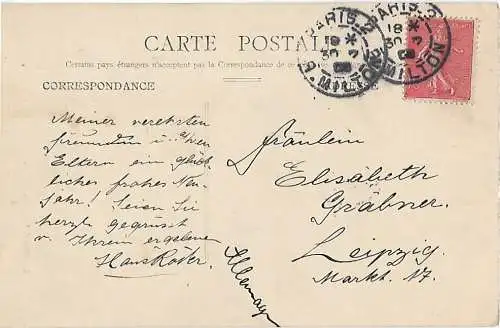 CARTE POSTALE
Certains pays étrangers n'acceptent pas la Correspondance de ce
CORRESPONDANCE
PARIS 2
R. MILTON
PARIS
MILTON
Meiner verehrten
freundin u. Ihren
Eltern ein glück-
liches frohes Neu-
jahr! Seien Sie
herzl. gegrüsst
v. Ihrem ergebenen
Hans Röder.
Fräulein
Elisabeth
Gräbner.
Leipzig.
Markt. 17.
Allemagne